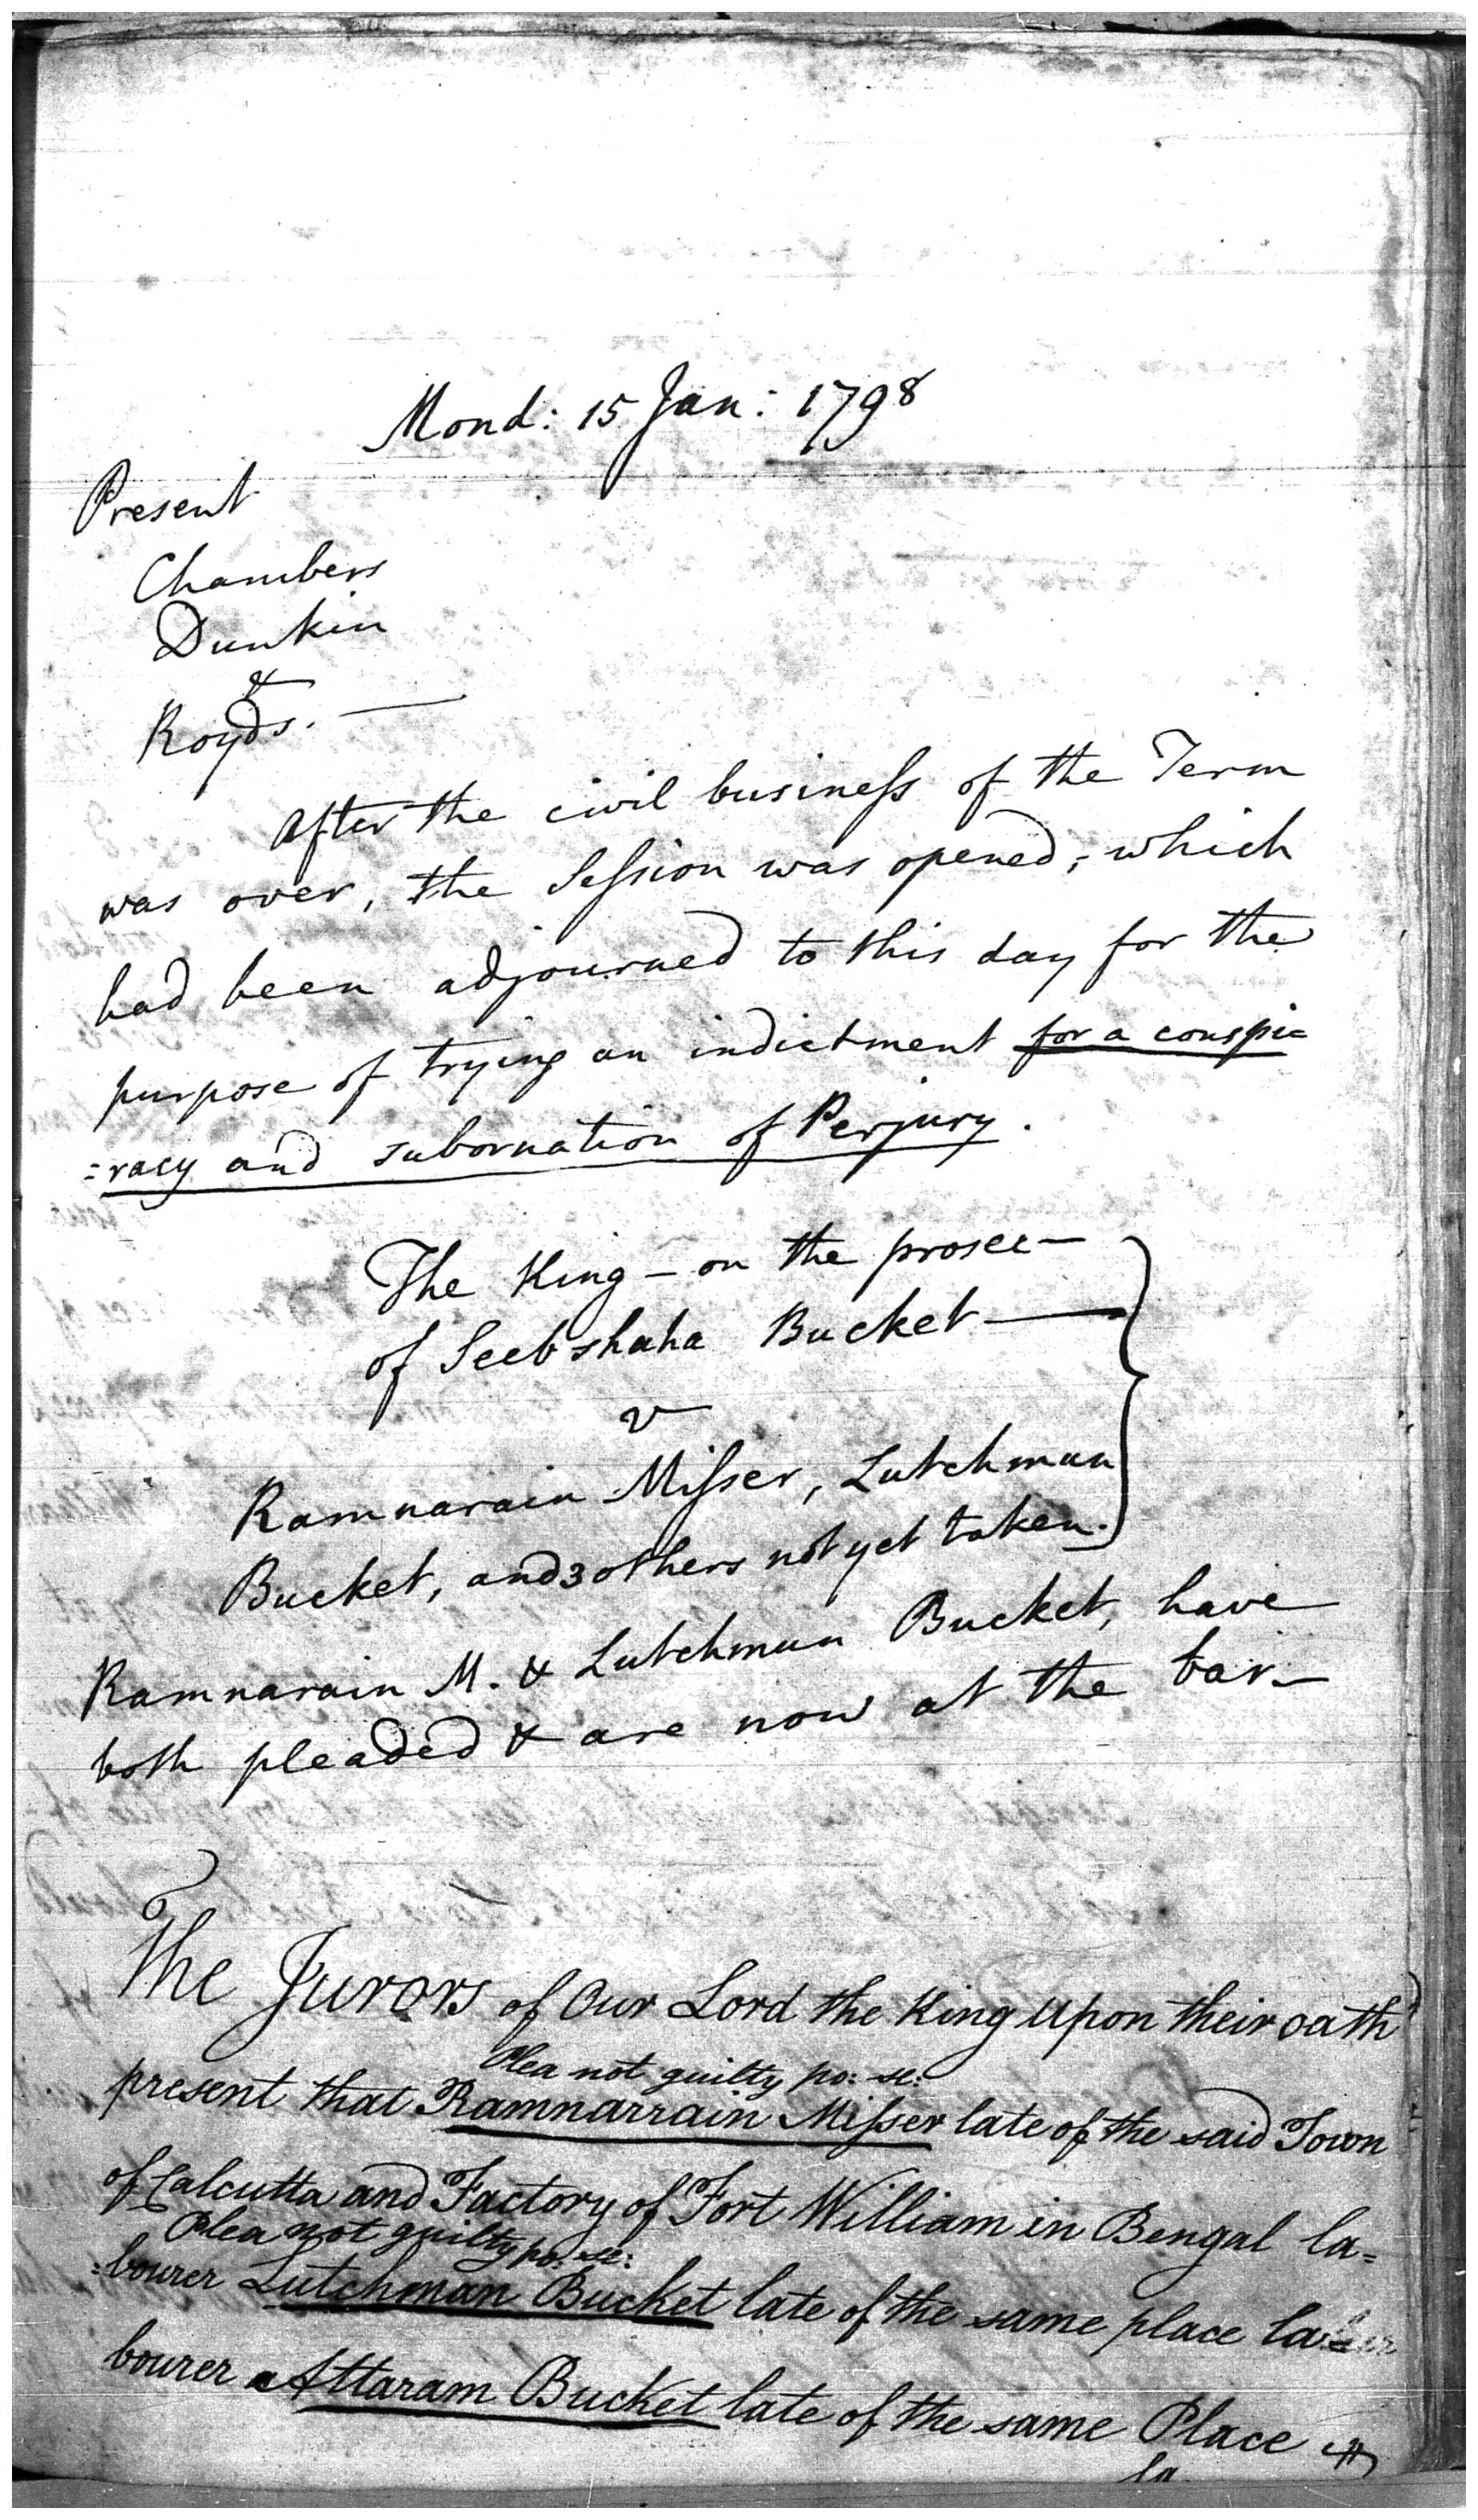 Mond: 15 Jan: 1798
Present
Chambers
Dunkin
&
Royds. —
After the civil busineſs of the Term
was over, the Seſsion was opened, which
had been adjourned to this day for the
purpose of trying an indictment for a conspi=
=racy and subornation of Perjury.
The King – on the prosec—
of Seebshaha Bucket —
v
Ramnarain Miſser, Lutchmun
Bucket, and 3 others not yet taken.
Ramnarain M. & Lutchmun Bucket, have
both pleaded & are now at the bar.—
The Jurors of Our Lord the King Upon their oath
Plea not guilty po: se:
present that Ramnarrain Miſser late of the said Town
of Calcutta and Factory of Fort William in Bengal la=
Plea not guilty po: se:
=bourer Lutchman Bucket late of the same place la
bourer Attaram Bucket late of the same Place
la